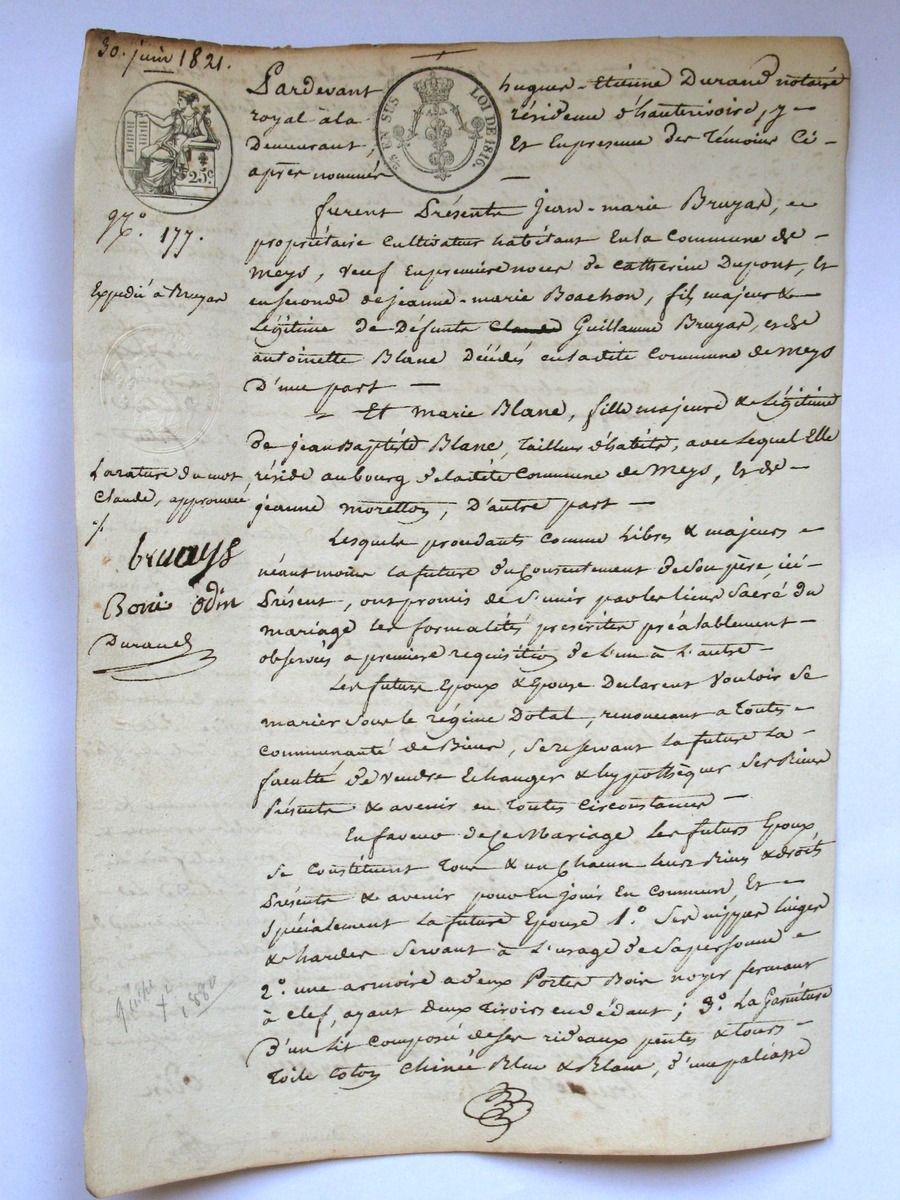 30. juin 1821.
Pardevant hugues-Etienne Durand notaire
royal à la résidence d'hauterivoire, y
Demeurant, Et En presence des Témoins Ci-
après nommés
25c
EN SUS
LOI DE 1816.
N.° 177.
Expedié à Bruyas
furent Présents Jean-marie Bruyas,
propriétaire Cultivateur habitant En la Commune de
meys, veuf En première noces de Catherine Dupont, Et
en seconde de jeanne-marie Boachon, fils majeur &
Légitime de Défunts Claude Guillaume Bruyas, et de
antoinette Blanc Décédés en ladite Commune de Meys
D'une part
Et Marie Blanc, fille majeure & Légitime
de jean Baptiste Blanc, Tailleur d'habits, avec Lequel Elle
réside au bourg de ladite Commune de Meys, et de
jeanne moretton, D'autre part
La rature du mot
Claude, approuvée
bruays
Boni Odin
Durand
Lesquels procédants Comme Libres & majeurs
néantmoins la future du Consentement de Son père ici
Présent, ont promis de S'unir par les liens Sacré du
mariage les formalités prescrites préalablement
observés a première requisition de L'un à L'autre
Les futurs Epoux & Epouse Déclarent Vouloir Se
marier Sous le régime Dotal, renoncant a toutes
Communauté de Biens, Se reservant la future La
faculté de Vendre Echanger & hypothèquer Ses Biens
Présents & avenir en Toutes Circonstances
En faveur de Ce Mariage Les futurs Epoux
Se Constituent Tous & un Chacun leurs Biens & droits
Présents & avenir pour En jouir En Commun Et
Spécialement la future Epouse 1.° Ses nippes linges
& hardes Servant à L'usage de Sa personne
2.° une armoire a deux Portes Bois noyer fermant
à Clef, ayant deux Tiroirs en dédant; 3.° La Garniture
D'un Lit Composé de Ses rideaux pentes & tours
Toile Coton Chinée Bleu & Blanc, d'une paliasse
1880